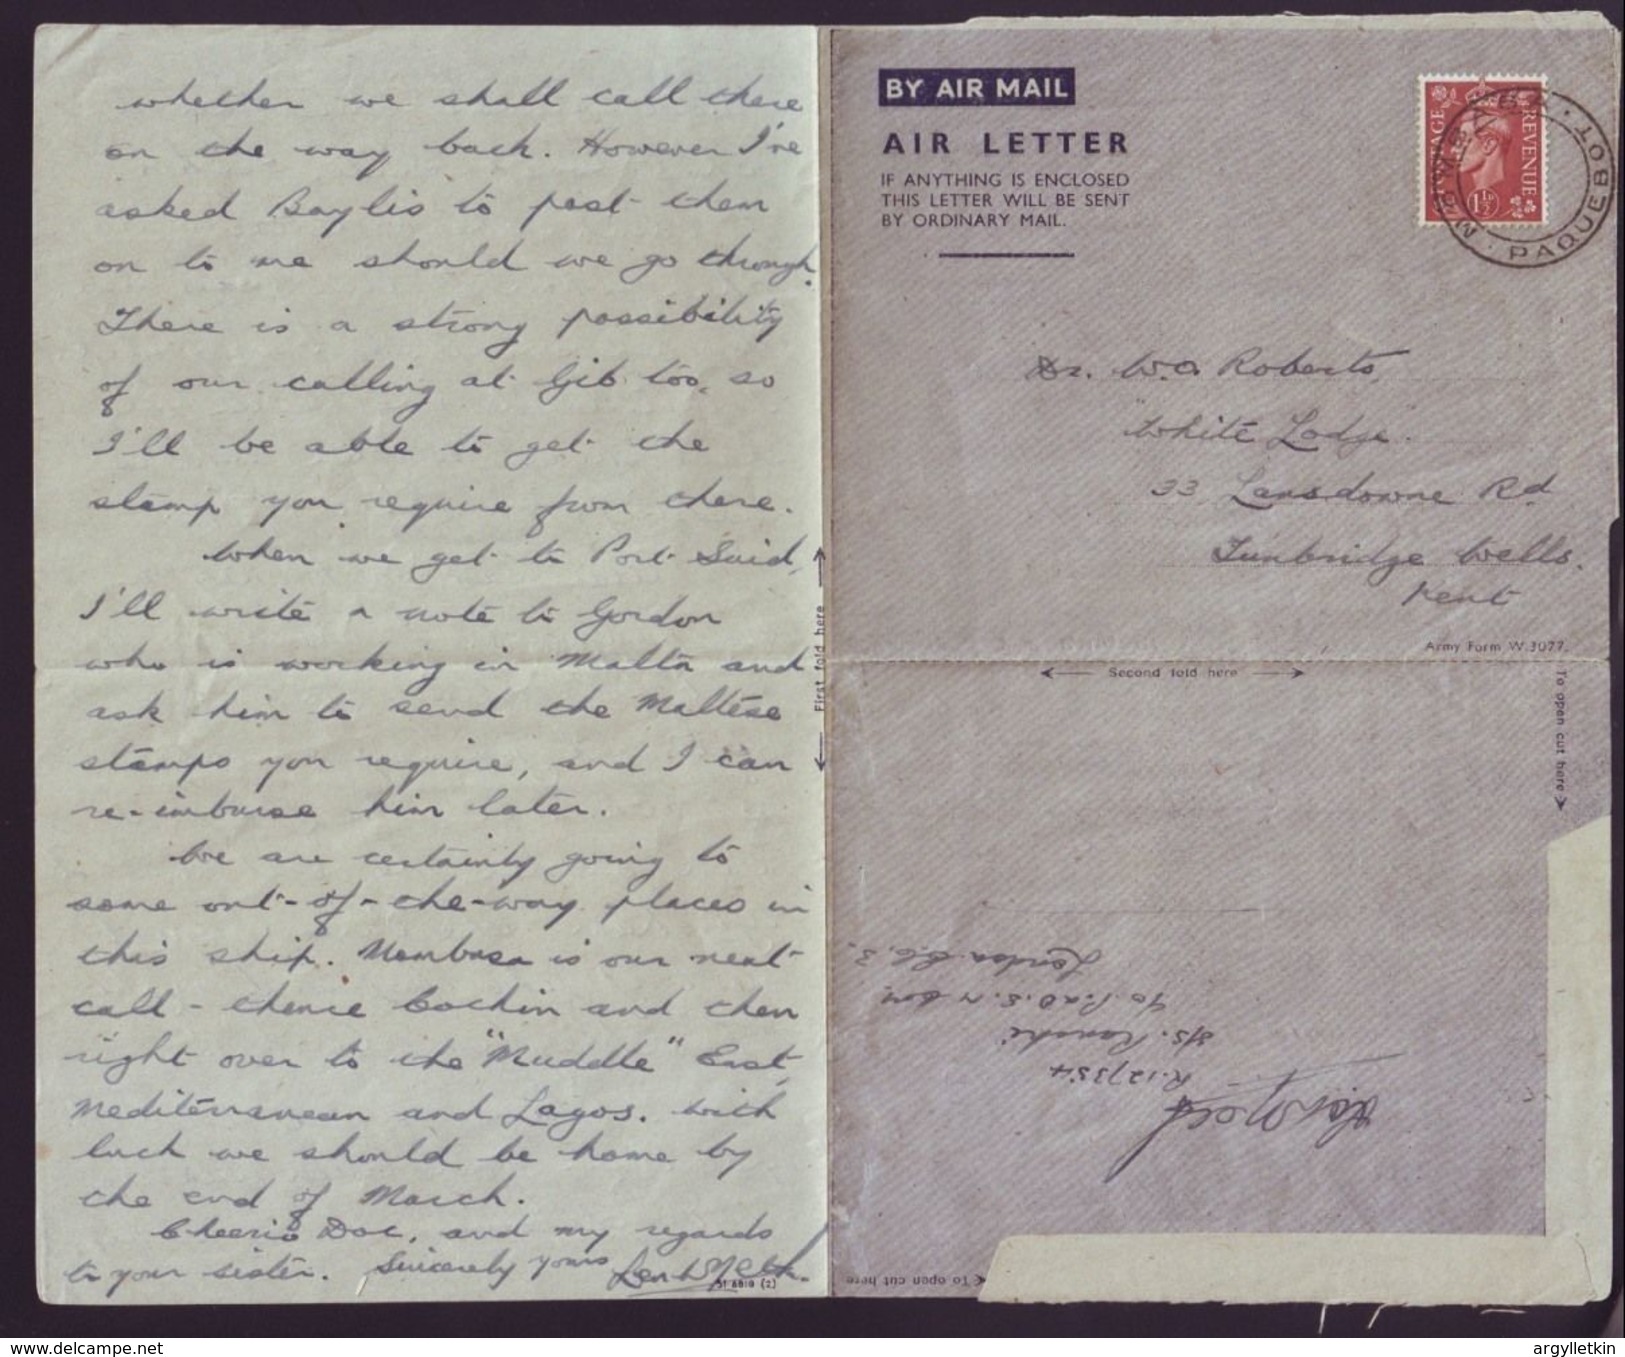 whether we shall call there
on the way back. However I've
asked Baylis to post them
on to me should we go through.
There is a strong possibility
of our calling at Gib too, so
I'll be able to get the
stamp you require from there.
When we get to Port Said,
I'll write a note to Gordon
who is working in Malta and
ask him to send the Maltese
stamps you require, and I can
re-imburse him later.
We are certainly going to
some out-of-the-way places in
this ship. Mombasa is our next
call - thence Cochin and then
right over to the "Muddle" East,
Mediterranean and Lagos. With
luck we should be home by
the end of March.
Cheerio Doc, and my regards
to your sister. Sincerely yours
51-6818 (2)
First fold here
BY AIR MAIL
AIR LETTER
IF ANYTHING IS ENCLOSED
THIS LETTER WILL BE SENT
BY ORDINARY MAIL.
POSTAGE REVENUE
1½D
PAQUEBOT
Dr. W.A. Roberts,
"White Lodge".
33 Lansdowne Rd
Tunbridge Wells.
Kent
Army Form W.3077.
Second fold here
To open cut here
R.123514
S/S. Ranchi
London E.C.3.
To open cut here
argylletkin
delcampe.net